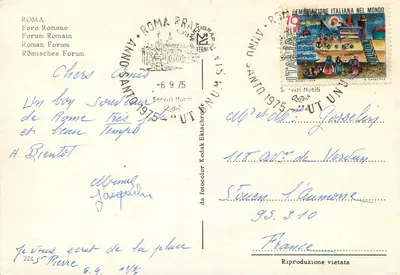 ROMA
Foro Romano
Forum Romain
Roman Forum
Römisches Forum
Chers amis
Un bon souvenir
de Rome très joli
et beau temps
A Bientot
Jacqueline
je vous écrit de la place
St Pierre
6.9.
da fotocolor Kodak Ektachrome
ROMA
ANNO SANTO 1975
"UT UNUM SINT"
6-9.75
Servizi Mobili
EMIGRAZIONE ITALIANA NEL MONDO
ITALIA
ANNO SANTO 1975
"UT UNU
Servizi Mobili
M. et Me Gosselin
118 av. de Verdun
St Ouen l'Aumone
95.310
France
Riproduzione vietata